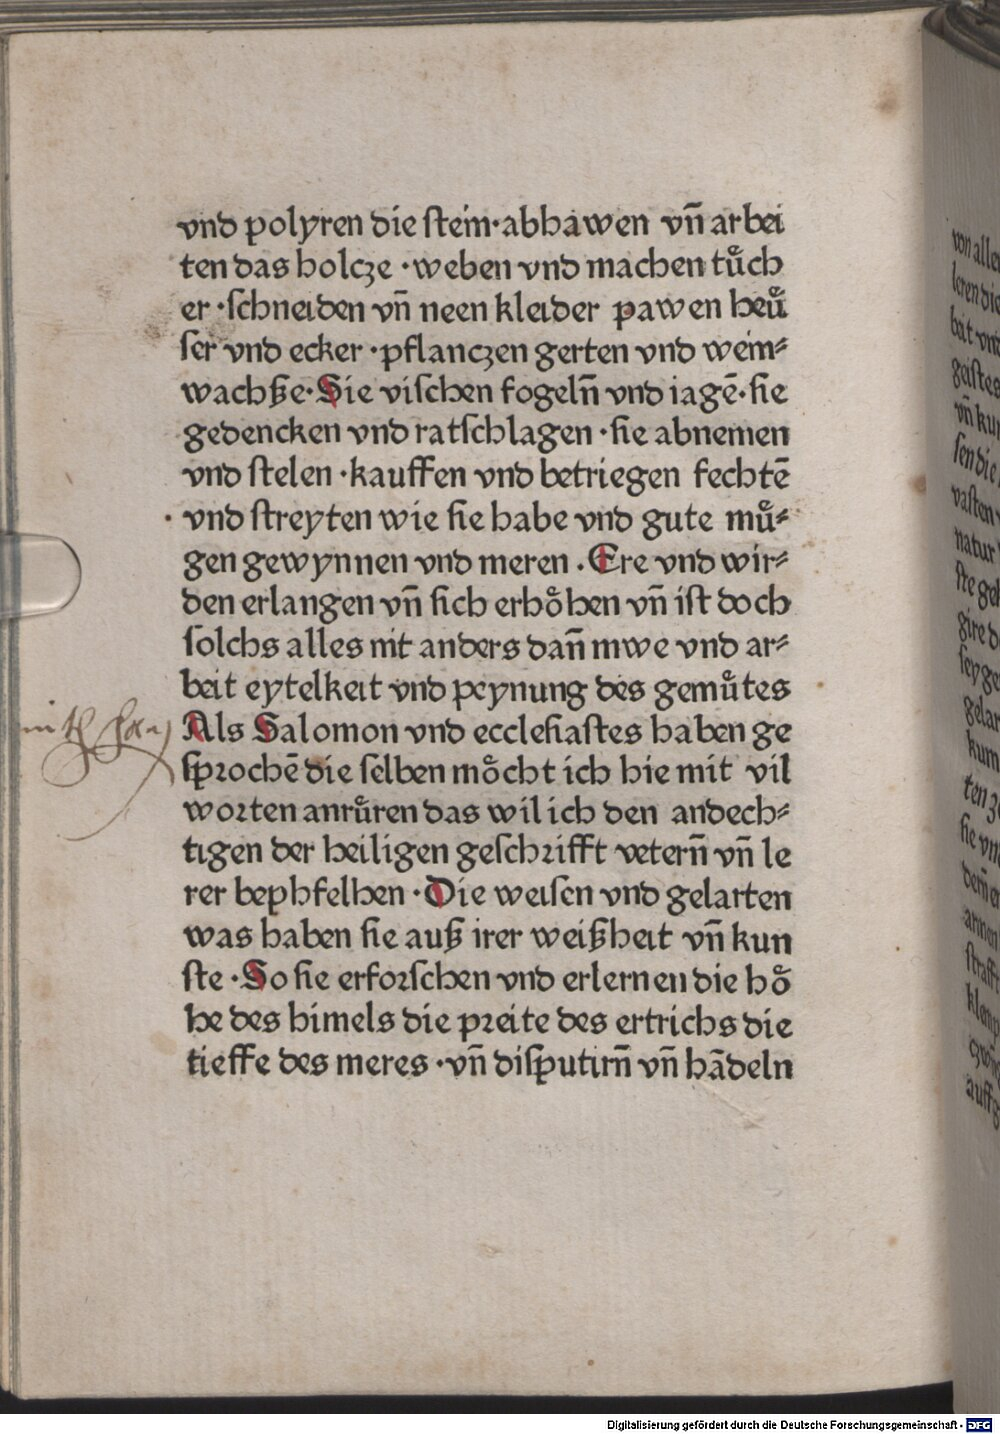 vnd polyren die ſtein·abhawen vn̄ arbei
ten das holcze ·weben vnd machen tuͤch
er ·ſchneiden vn̄ neen kleider pawen heuͤ
ſer vnd ecker ·pflanczen gerten vnd wein⸗
wachße·Sie viſchen fogeln̄ vnd iagē·ſie
gedencken vnd ratſchlagen ·ſie abnemen
vnd ſtelen ·kauffen vnd betriegen fechtē
vnd ſtreyten wie ſie habe vnd gute muͤ⸗
gen gewynnen vnd meren ·Ere vnd wir⸗
den erlangen vn̄ ſich erhoͤhen vn̄ iſt doch
ſolchs alles nit anders dan̄ mwe vnd ar⸗
beit eytelkeit vnd peynung des gemuͤtes
Als Salomon vnd eccleſiaſtes haben ge
ſprochē die ſelben moͤcht ich hie mit vil
worten anruͤren das wil ich den andech⸗
tigen der heiligen geſchrifft vetern̄ vn̄ le
rer bephfelhen ·Die weiſen vnd gelarten
was haben ſie auß irer weißheit vn̄ kun
ſte ·So ſie erforſchen vnd erlernen die hoͤ
he des himels die preite des ertrichs die
tieffe des meres ·vn̄ diſputirn̄ vn̄ hādeln
Digitalisierung gefördert durch die Deutsche Forschungsgemeinschaft - DFG